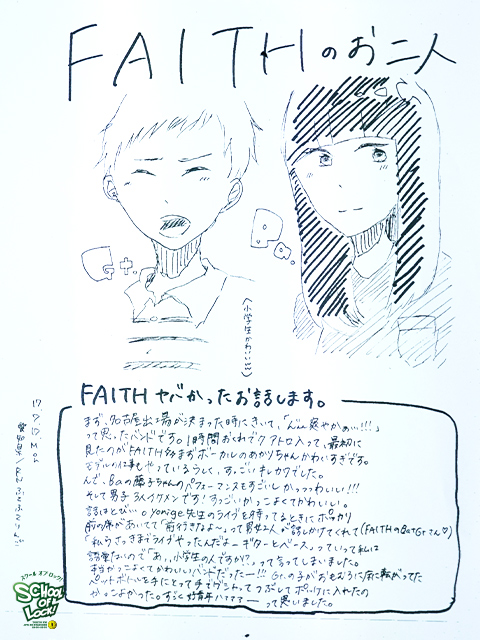 FAITHのお二人
Gt.
Ba.
(小学生かわいいいい)
FAITH ヤバかったお話します。
まず、名古屋出場が決まった時にきいて、「んん爽やかぁ…!!!」
って思ったバンドです。1時間おくれでクアトロ入って、最初に
見たのがFAITH ボーカルのあかりちゃんかわいすぎです。
すっごいキレカワでした。
んで、Baの藤子ちゃんのパフォーマンスもすごしかっっっわいい!!!
そして男子3人イケメンです!すっごいかっこよくてかわいい。
話はとび…。yonigeのライブを待ってるときにポッカリ
前の席があいてて「前行きなよ〜」って男女2人が話しかけてくれて(FAITHのBaとGtさん♡)
「私らさっきまでライブやったんだよーギターとベース」っていって私は
語彙ないので「あっ、小学生の人ですか?」って言ってしまいました。
本当かっこよくてかわいいバンドだったー!!! Gt.の子がおもむろに床に転がってた
ペットボトルを手にとって手でグシャってつぶしてポッケに入れたの
かっこよかった。すらっと好青年ハァァァァーって思いました。
17.9.15. Mon
スクール オブ ロック!
SCHOOL OF LOCK!